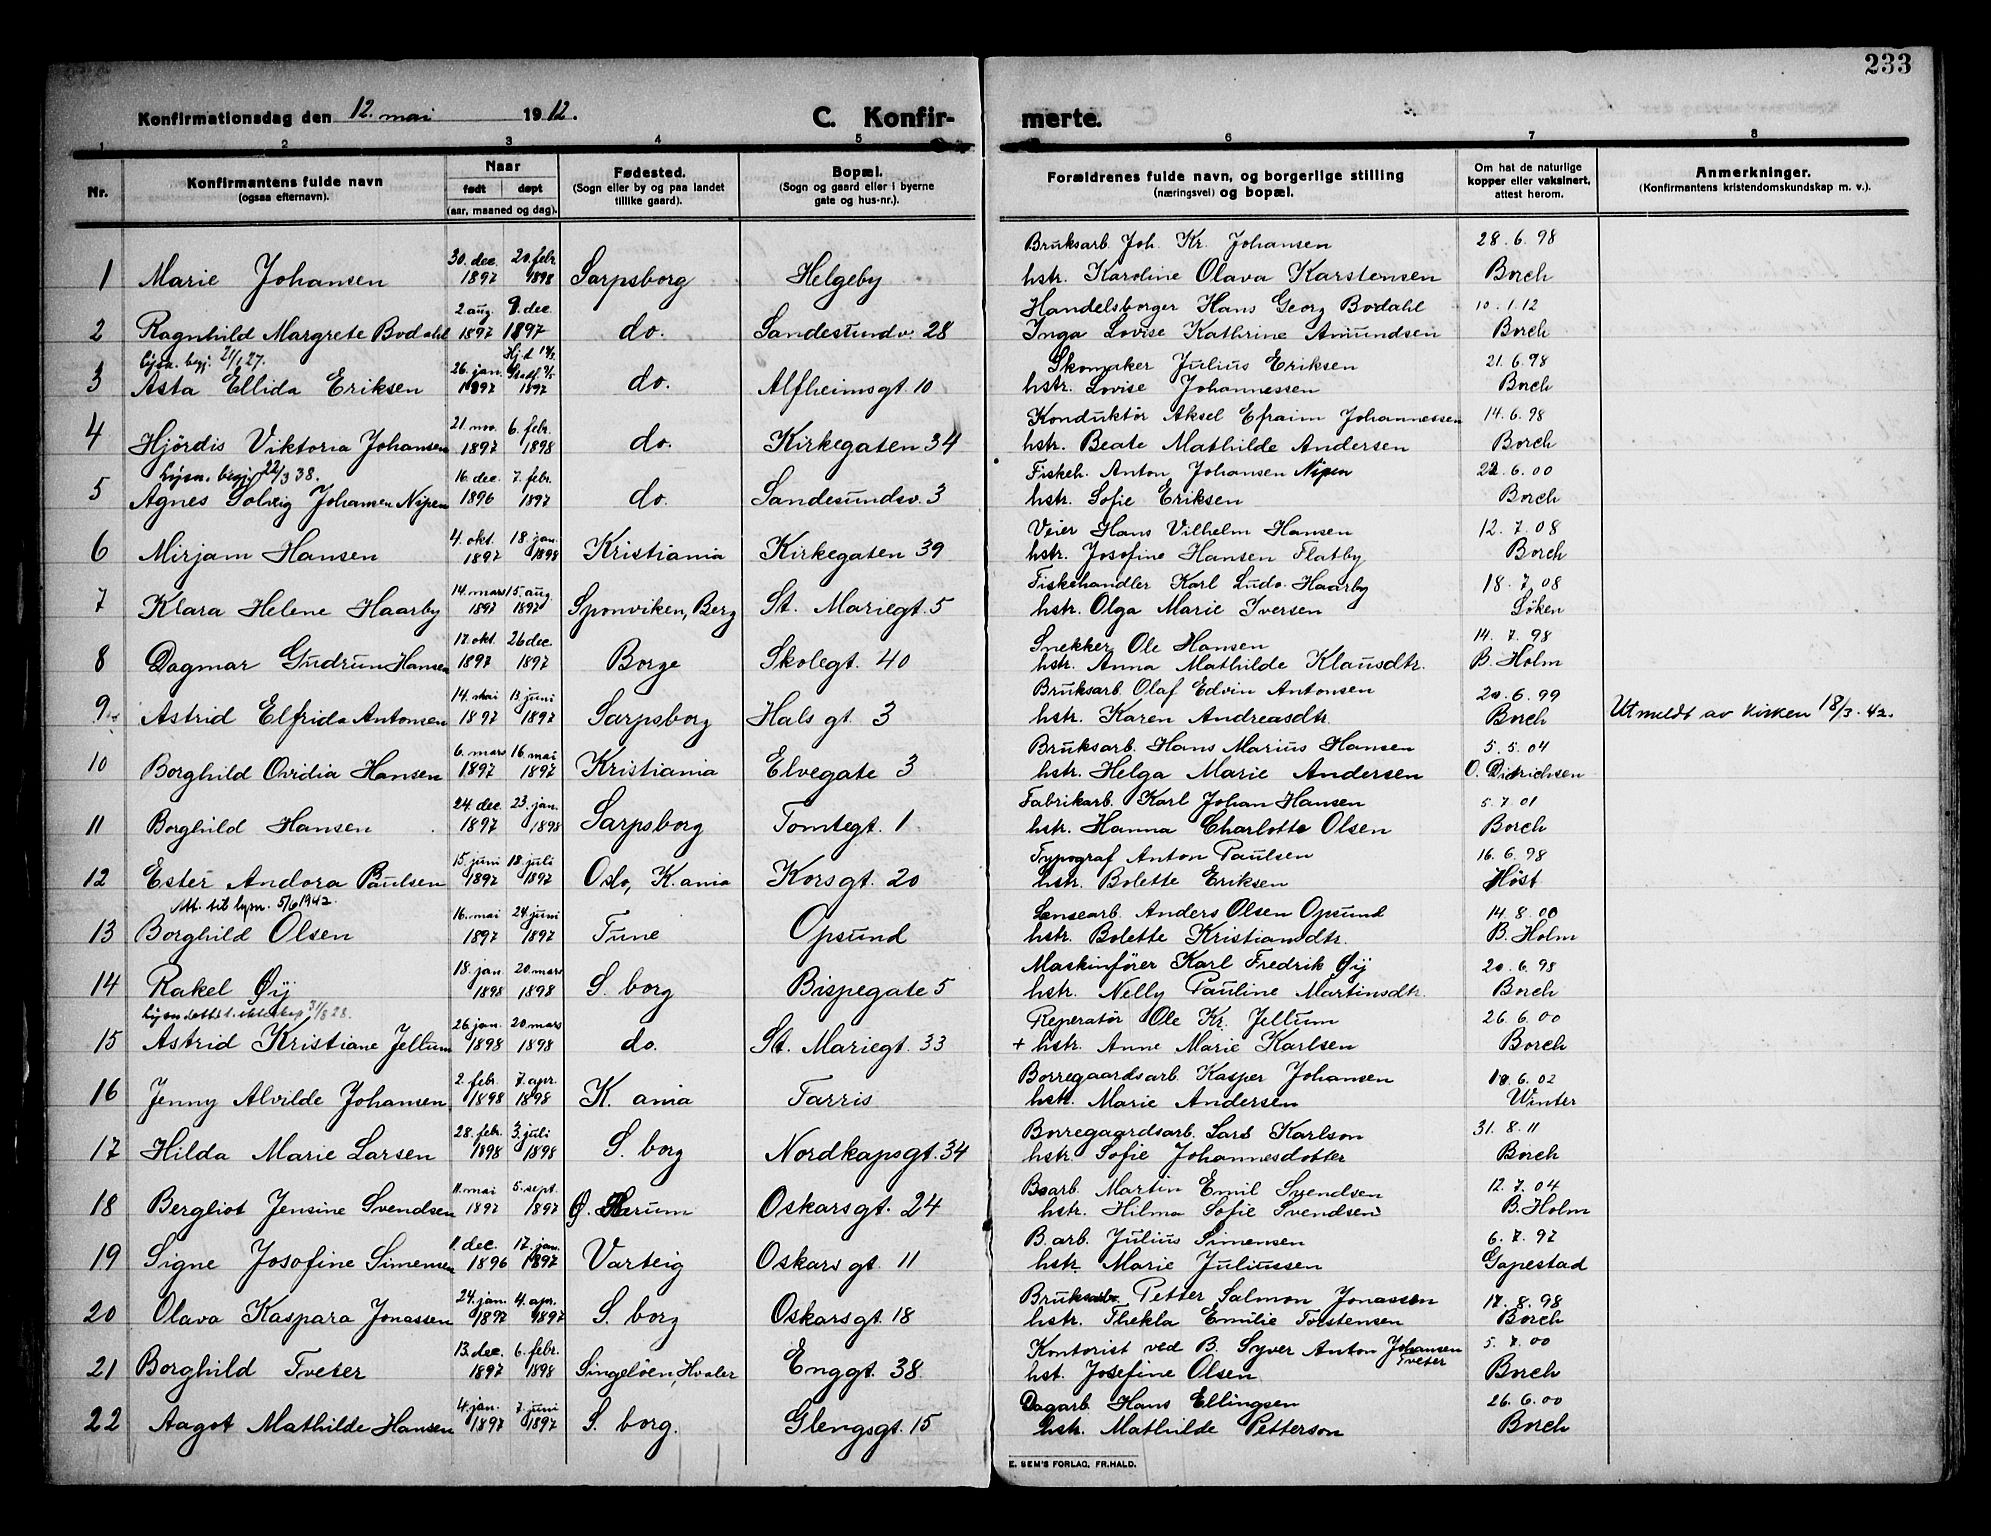 233
Konfirmationsdag den 12. mai 1912. C. Konfir- merte.
1 2 3 4 5 6 7 8
Nr. Konfirmantens fulde navn (ogsaa efternavn). Naar født døpt (aar, maaned og dag). Fødested. (Sogn eller by og paa landet tillike gaard). Bopæl. (Sogn og gaard eller i byerne gate og hus-nr.). Forældrenes fulde navn, og borgerlige stilling (næringsvei) og bopæl. Om hat de naturlige kopper eller vaksinert, attest herom. Anmerkninger. (Konfirmantens kristendomskundskap m. v.).
30. dec. 20. febr Bruksarb. Joh. Kr. Johansen 28. 6. 98
1 Marie Johansen 1897 1898 Sarpsborg Helgeby hstr. Karoline Olava Karstensen Borch
2. aug. 9. dec. Handelsborger Hans Georg Bodahl 10. 1. 12
2 Ragnhild Margrete Bodahl 1897 1897 do. Sandesundv. 28 Inga Lovise Kathrine Amundsen Borch
26. jan. Skomaker Julius Eriksen 21. 6. 98
3 Asta Ellida Eriksen 1897 1897 do. Alfheimsgt. 10 hstr. Lovise Johannessen Borch
21. nov. 6. febr. Konduktør Aksel Efraim Johannessen 14. 6. 98
4 Hjördis Viktoria Johansen 1897 1898 do. Kirkegaten 34 hstr. Beate Mathilde Andersen Borch
Lysn. begj. 22/3 38. 16. dec. 7. febr. Fiskeh. Anton Johansen Nipen 22. 6. 00
5 Agnes Solveig Johansen Nipen 1896 1897 do. Sandesundsv. 3 hstr. Sofie Eriksen Borch
4. okt. 18. jan. Veier Hans Vilhelm Hansen 12. 7. 08
6 Mirjam Hansen 1897 1898 Kristiania Kirkegaten 39 hstr. Josofine Hansen Flatby Borch
14. mars 15. aug. Fiskehandler Karl Ludv. Haarby 18. 7. 08
7 Klara Helene Haarby 1897 1897 Sponviken, Berg St. Mariegt. 5 hstr. Olga Marie Iversen Løken
17. okt. 26 dec. Snekker Ole Hansen 14. 7. 98
8 Dagmar Gudrun Hansen 1897 1897 Borge Skolegt. 40 hstr. Anna Mathilde Klausdtr. B. Holm
14. mai 13. juni Bruksarb. Olaf Edvin Antonsen 20. 6. 99
9 Astrid Elfrida Antonsen 1897 1897 Sarpsborg Hals gt. 3 hstr. Karen Andreasdtr. Borch Utmeldt av kirken 18/3. 42.
6. mars 16. mai Bruksarb. Hans Marius Hansen 5. 5. 04
10 Borghild Ovidia Hansen 1897 1897 Kristiania Elvegate 3 hstr. Helga Marie Andersen O. Didrichsen
24. dec. 23. jan. Fabrikarb. Karl Johan Hansen 5. 7. 01
11 Borghild Hansen 1897 1898 Sarpsborg Tomtegt. 1 hstr. Hanna Charlotte Olsen Borch
15. juni 18. juli Typograf Anton Paulsen 16. 6. 98
12 Ester Andora Paulsen 1897 1897 Oslo, K. ania Korsgt. 20 hstr. Bolette Eriksen Høst
Att. til lysn. 5/6 1942. 16. mai 24. juni Lensearb. Anders Olsen Opsund 14. 8. 00
13 Borghild Olsen 1897 1897 Tune Opsund hstr. Bolette Kristiansdtr. B. Holm
18. jan 20. mars Maskinfører Karl Fredrik Øij 20. 6. 98
14 Rakel Øij 1898 1898 S. borg Bispegate 5 hstr. Nelly Pauline Martinsdtr. Borch
26. jan. 20. mars Reperatør Ole Kr. Jellum 26. 6. 00
15 Astrid Kristiane Jellum 1898 1898 do. St. Mariegt. 33 + hstr. Anne Marie Karlsen Borch
2. febr. 7. apr. Borregaardsarb. Kasper Johansen 10. 6. 02
16 Jenny Alvilde Johansen 1898 1898 K. ania Tarris hstr. Marie Andersen Winter
28. febr. 3. juli Borregaardsarb. Lars Karlson 31. 8. 11
17 Hilda Marie Larsen 1898 1898 S. borg Nordkapsgt. 34 hstr. Sofie Johannesdotter Borch
11. mai 5. sept. Martin Emil Svendsen 12. 7. 04
18 Bergliot Jensine Svendsen 1897 1897 Oskarsgt. 24 hstr. Hilma Sofie Svendsen B. Holm
11. dec. 17. jan. B. arb. Julius Simensen 6. 7. 97
19 Signe Josofine Simensen 1896 1897 Varteig Oskars gt. 11 hstr. Marie Juliussen Gapestad
24. jan. 4. apr. Bruksarb. Petter Salmon Jonassen 17. 8. 98
20 Olava Kaspara Jonassen 1897 1897 S. borg Oskarsgt. 18 hstr. Thekla Emilie Torstensen Borch
13. dec. 6. febr. Kontorist ved B. Syver Anton Johansen Tveter 5. 7. 00
21 Borghild Tveter 1897 1898 Singelöen, Hvaler Enggt. 38. hst. Josefine Olsen Borch
4. jan. 7. juni Dagarb. Hans Ellingsen 26. 6. 00
22 Aagot Mathilde Hansen 1897 1897 S. borg. Glengsgt. 15 hstr. Mathilde Petterson Borch
E. SEM'S FORLAG, FR.HALD.